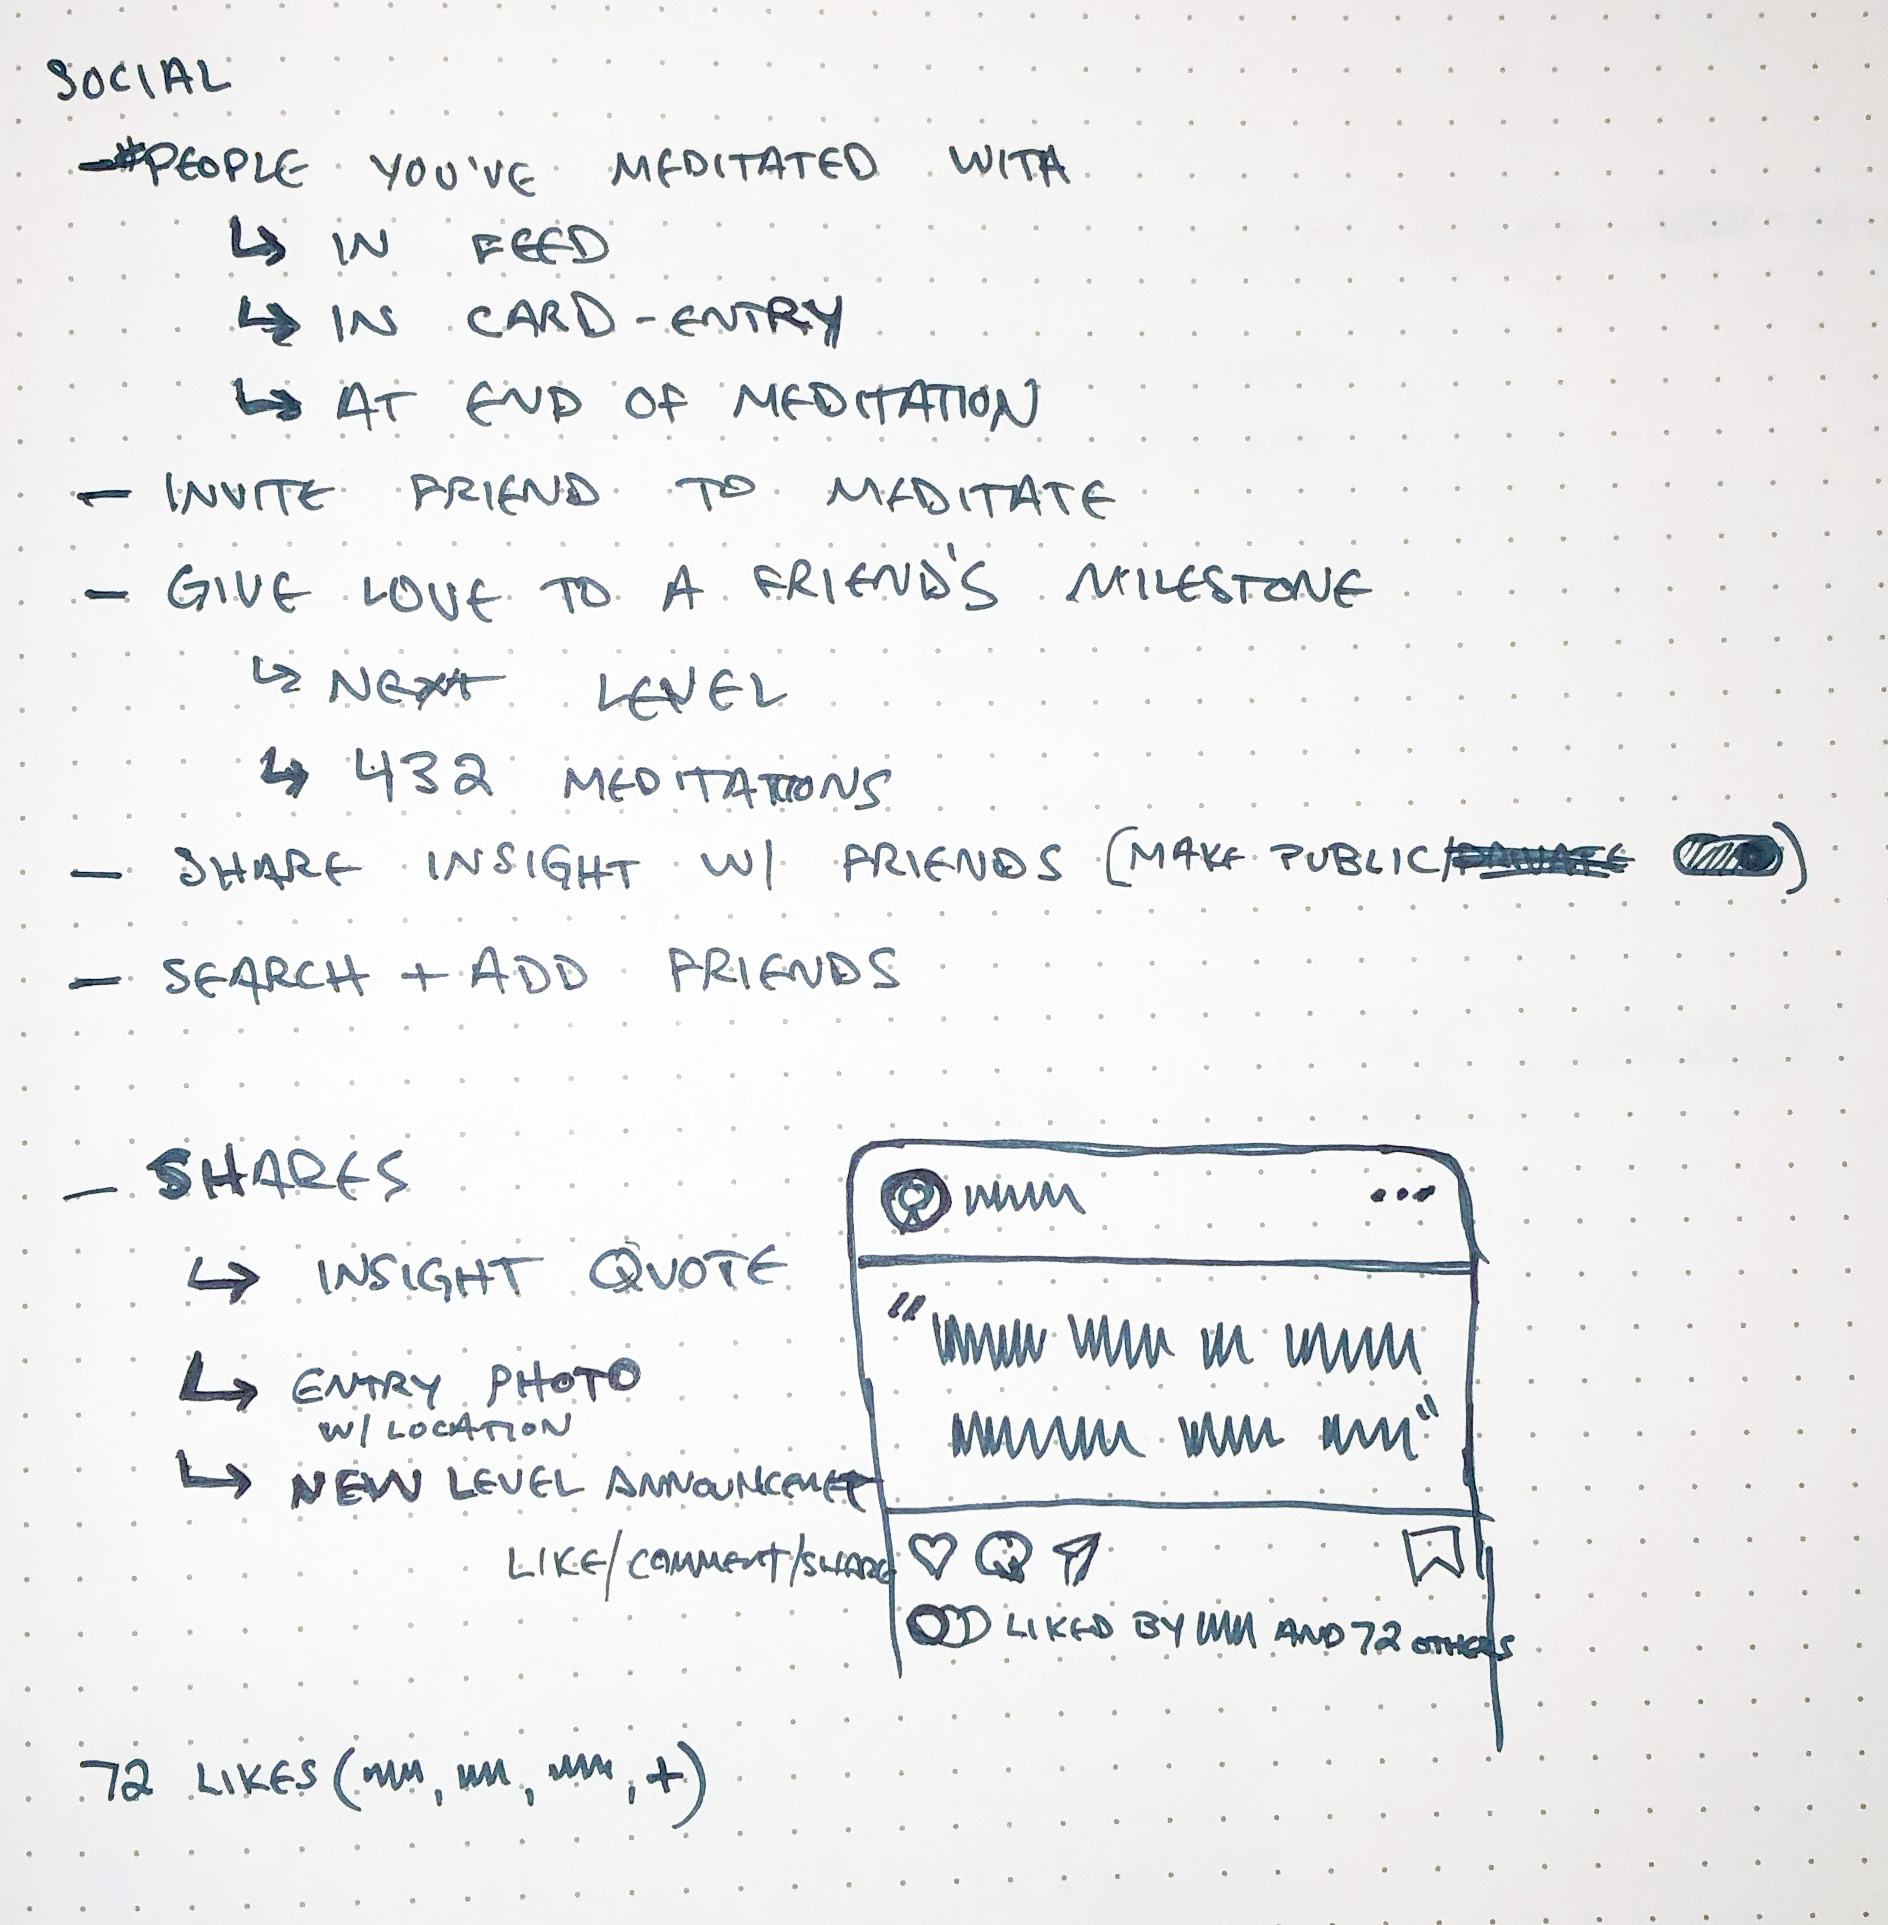 SOCIAL
- #PEOPLE YOU'VE MEDITATED WITH
↳ IN FEED
↳ IN CARD-ENTRY
↳ AT END OF MEDITATION
- INVITE FRIEND TO MEDITATE
- GIVE LOVE TO A FRIEND'S MILESTONE
↳ NEXT LEVEL
↳ 432 MEDITATIONS
- SHARE INSIGHT W/ FRIENDS (MAKE PUBLIC/ )
- SEARCH + ADD FRIENDS
- SHARES
↳ INSIGHT QUOTE
↳ ENTRY PHOTO
W/ LOCATION
↳ NEW LEVEL ANNOUNCEMET
LIKE/COMMENT/SHARE
...
"
"
LIKED BY AND 72 OTHERS
72 LIKES ( , , , +)